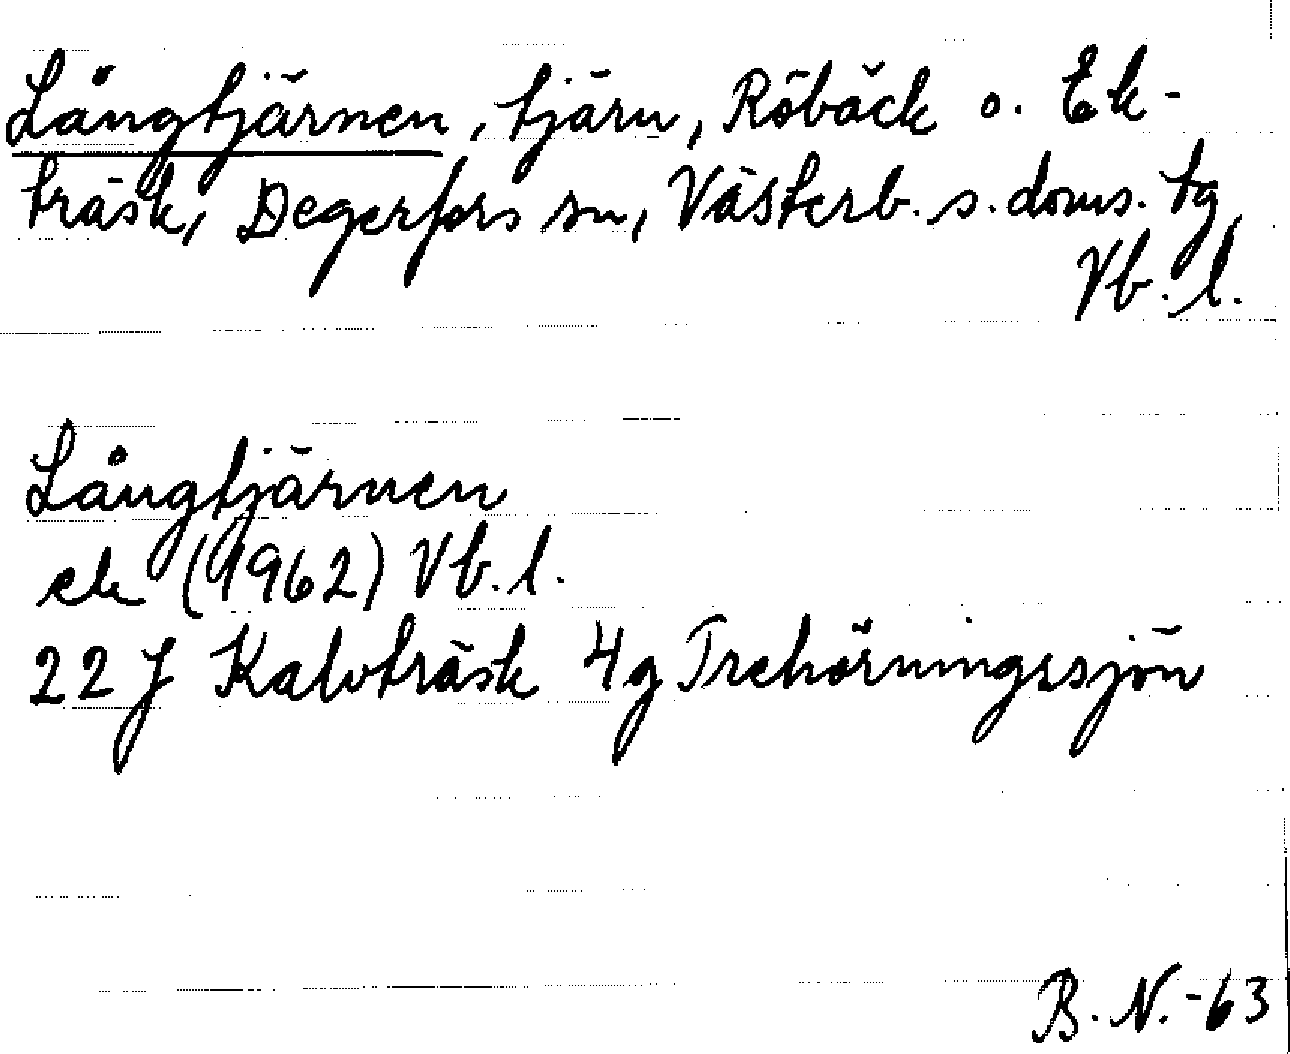 Långtjärnen, tjärn, Röbäck o. Ek-
träsk, Degerfors sn, Västerb. s. doms. tg,
Vb. l.
Långtjärnen
ek (1962) Vb. l.
22 J Kalvträsk 4g Trehörningssjön
B. N. -63